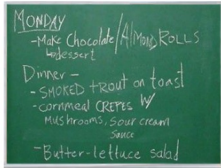 MONDAY
-Make Chocolate/Almond ROLLS
↳dessert
Dinner-
-SMOKED trout on toast
-cornmeal CREPES W/
Mushrooms, Sour cream
Sauce
-Butter-lettuce salad